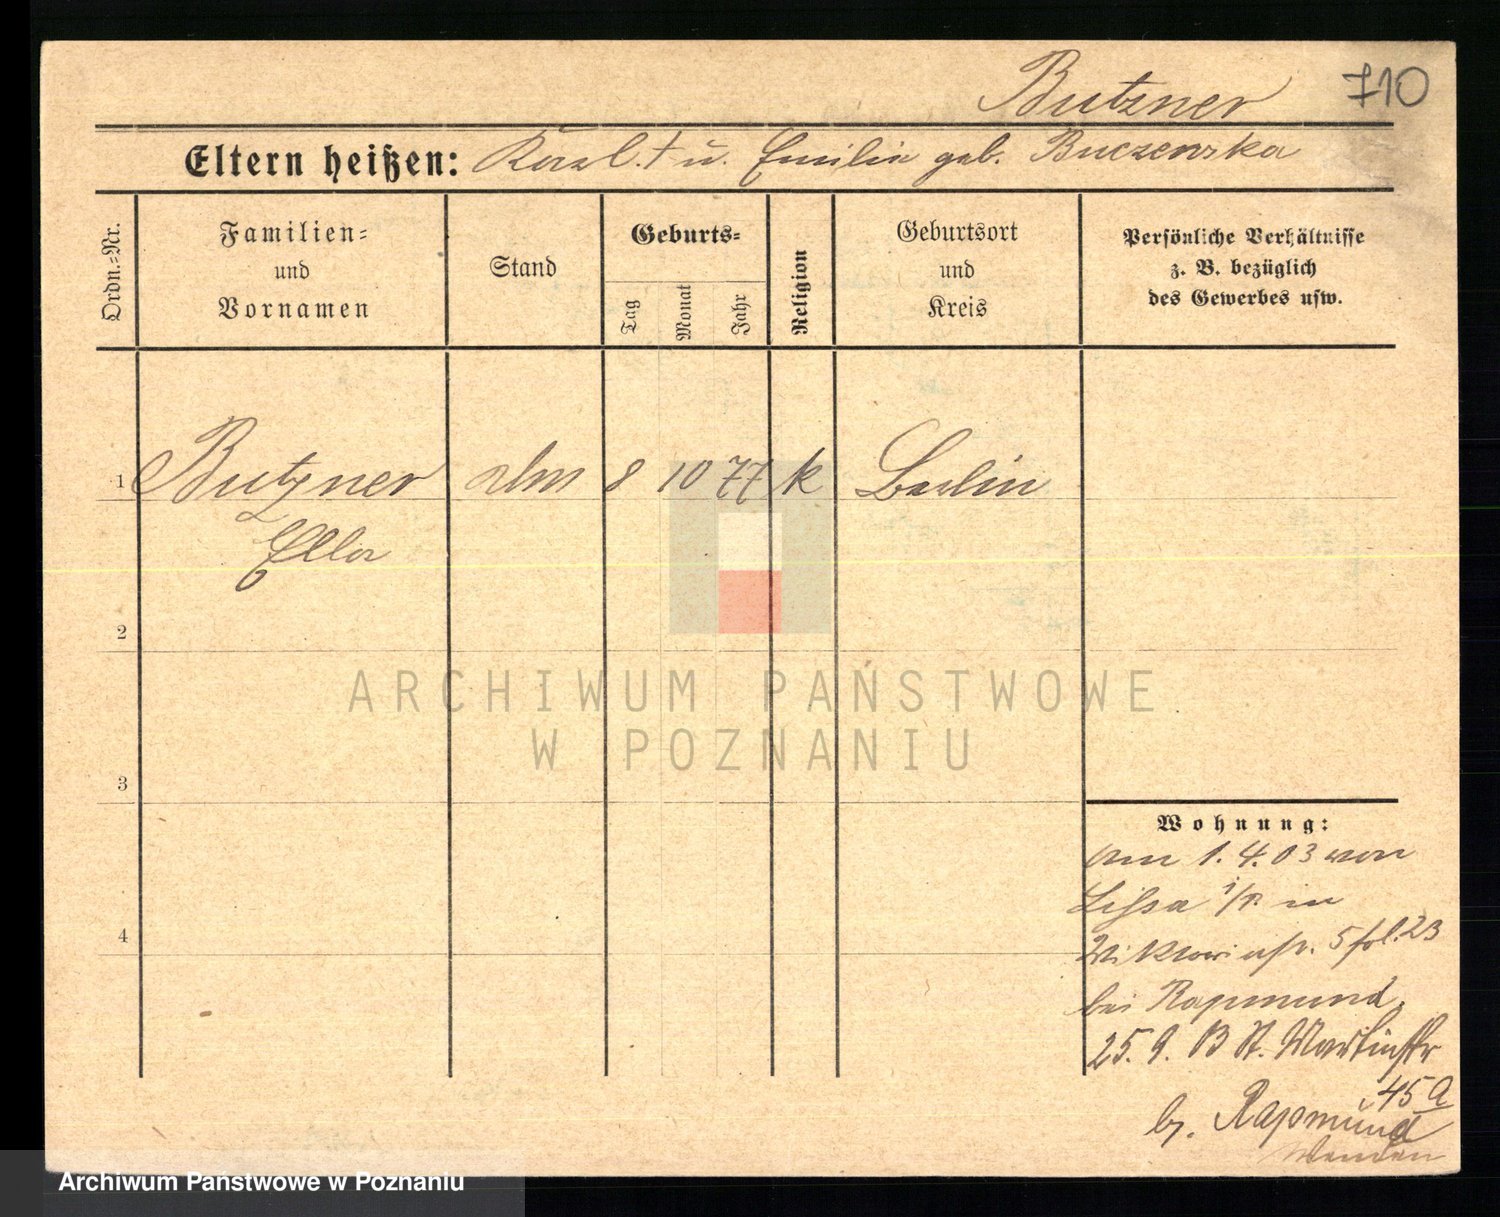 Butzner 710
Eltern heißen: Karl. † u. Emilie geb. Buczenska
Ordn.-Nr.
Familien-
und
Vornamen
Stand
Geburts-
Tag
Monat
Jahr
Religion
Geburtsort
und
Kreis
Persönliche Verhältnisse
z. B. bezüglich
des Gewerbes usw.
1 Butzner 8 10 77 k Berlin
Ella
2
3
4
Wohnung:
Am 1. 4. 03 von
Lissa i/P. in
5 fol. 23
bei Rapmund.
25. 9. St. Martinstr
45a
b. Rapmund
Wenden
ARCHIWUM PAŃSTWOWE
W POZNANIU
Archiwum Państwowe w Poznaniu